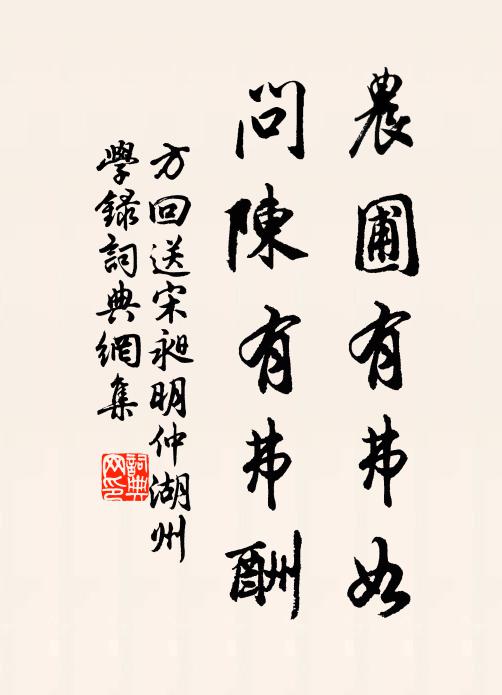 農圃有弗如
問陳有弗酬
方回送宋昶明仲湖州
學録詞典網集
詞典網印